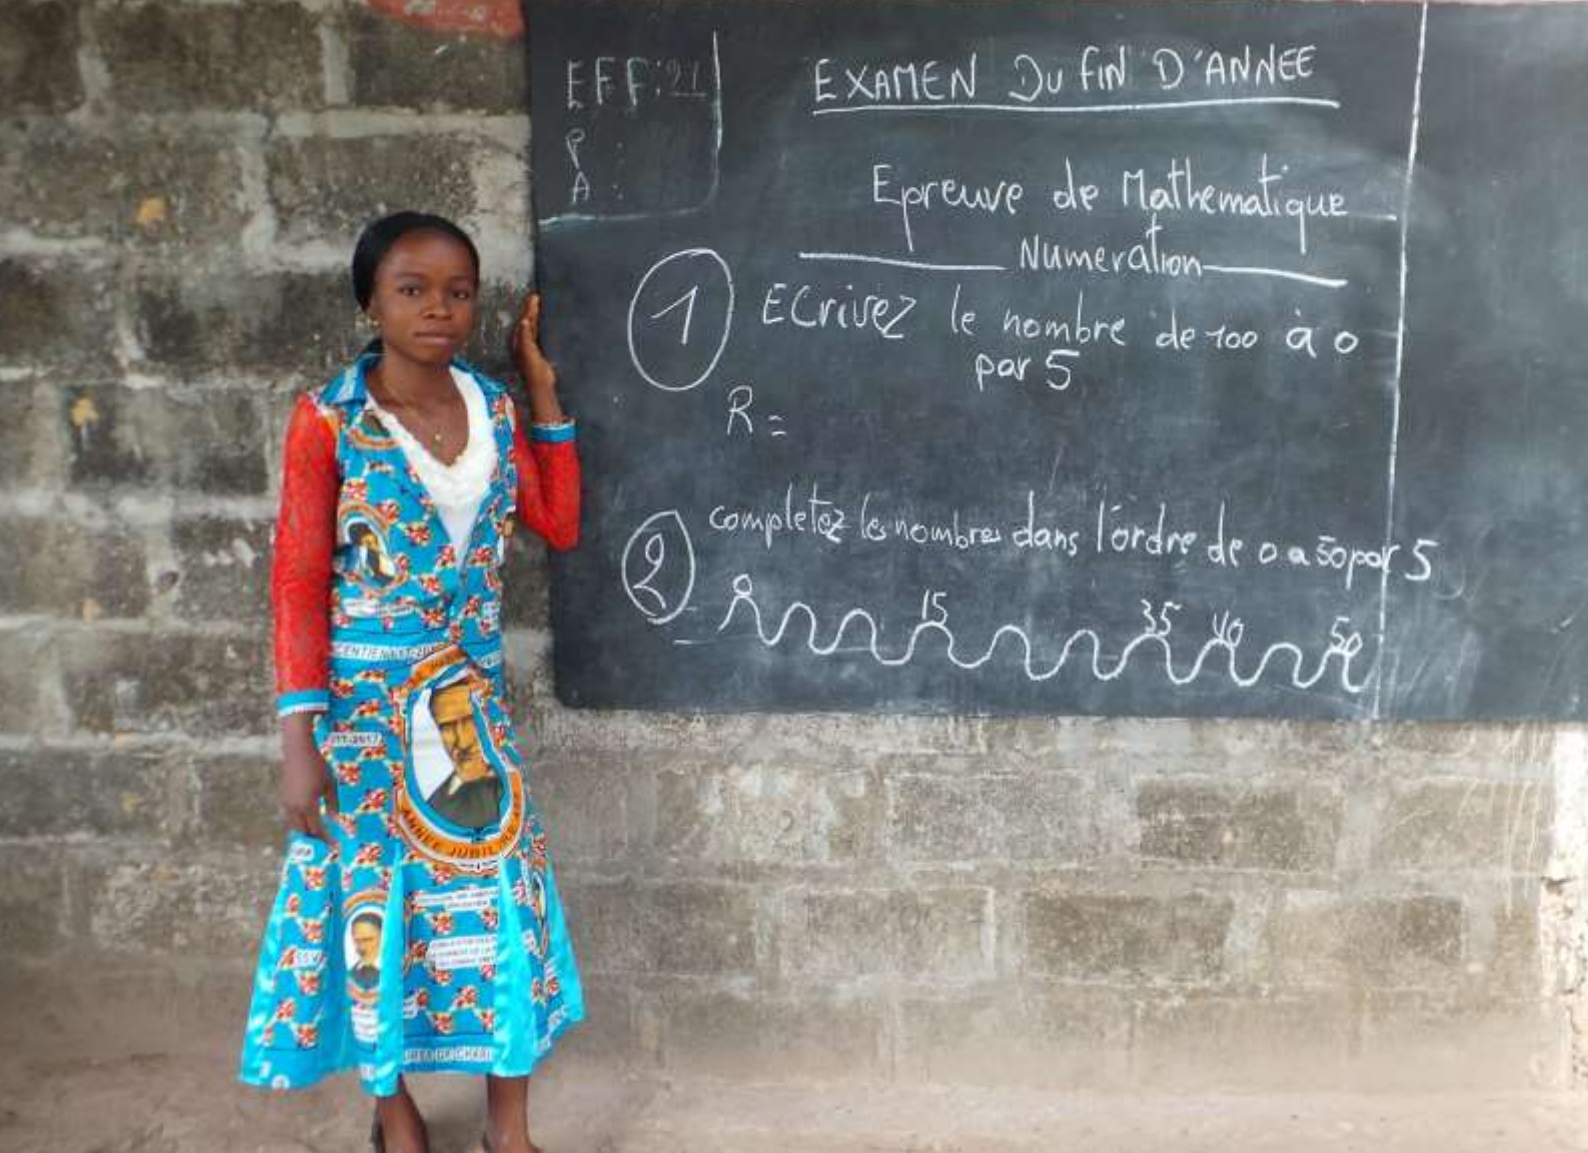 EFF: 21
P :
A :
EXAMEN DU FIN D'ANNEE
Epreuve de Mathematique
Numeration
1 ECrivez le nombre de 100 à 0
par 5
R =
2 completez les nombres dans l'ordre de 0 a 50 par 5
0 15 35 40 50
ANNEE JUBIL